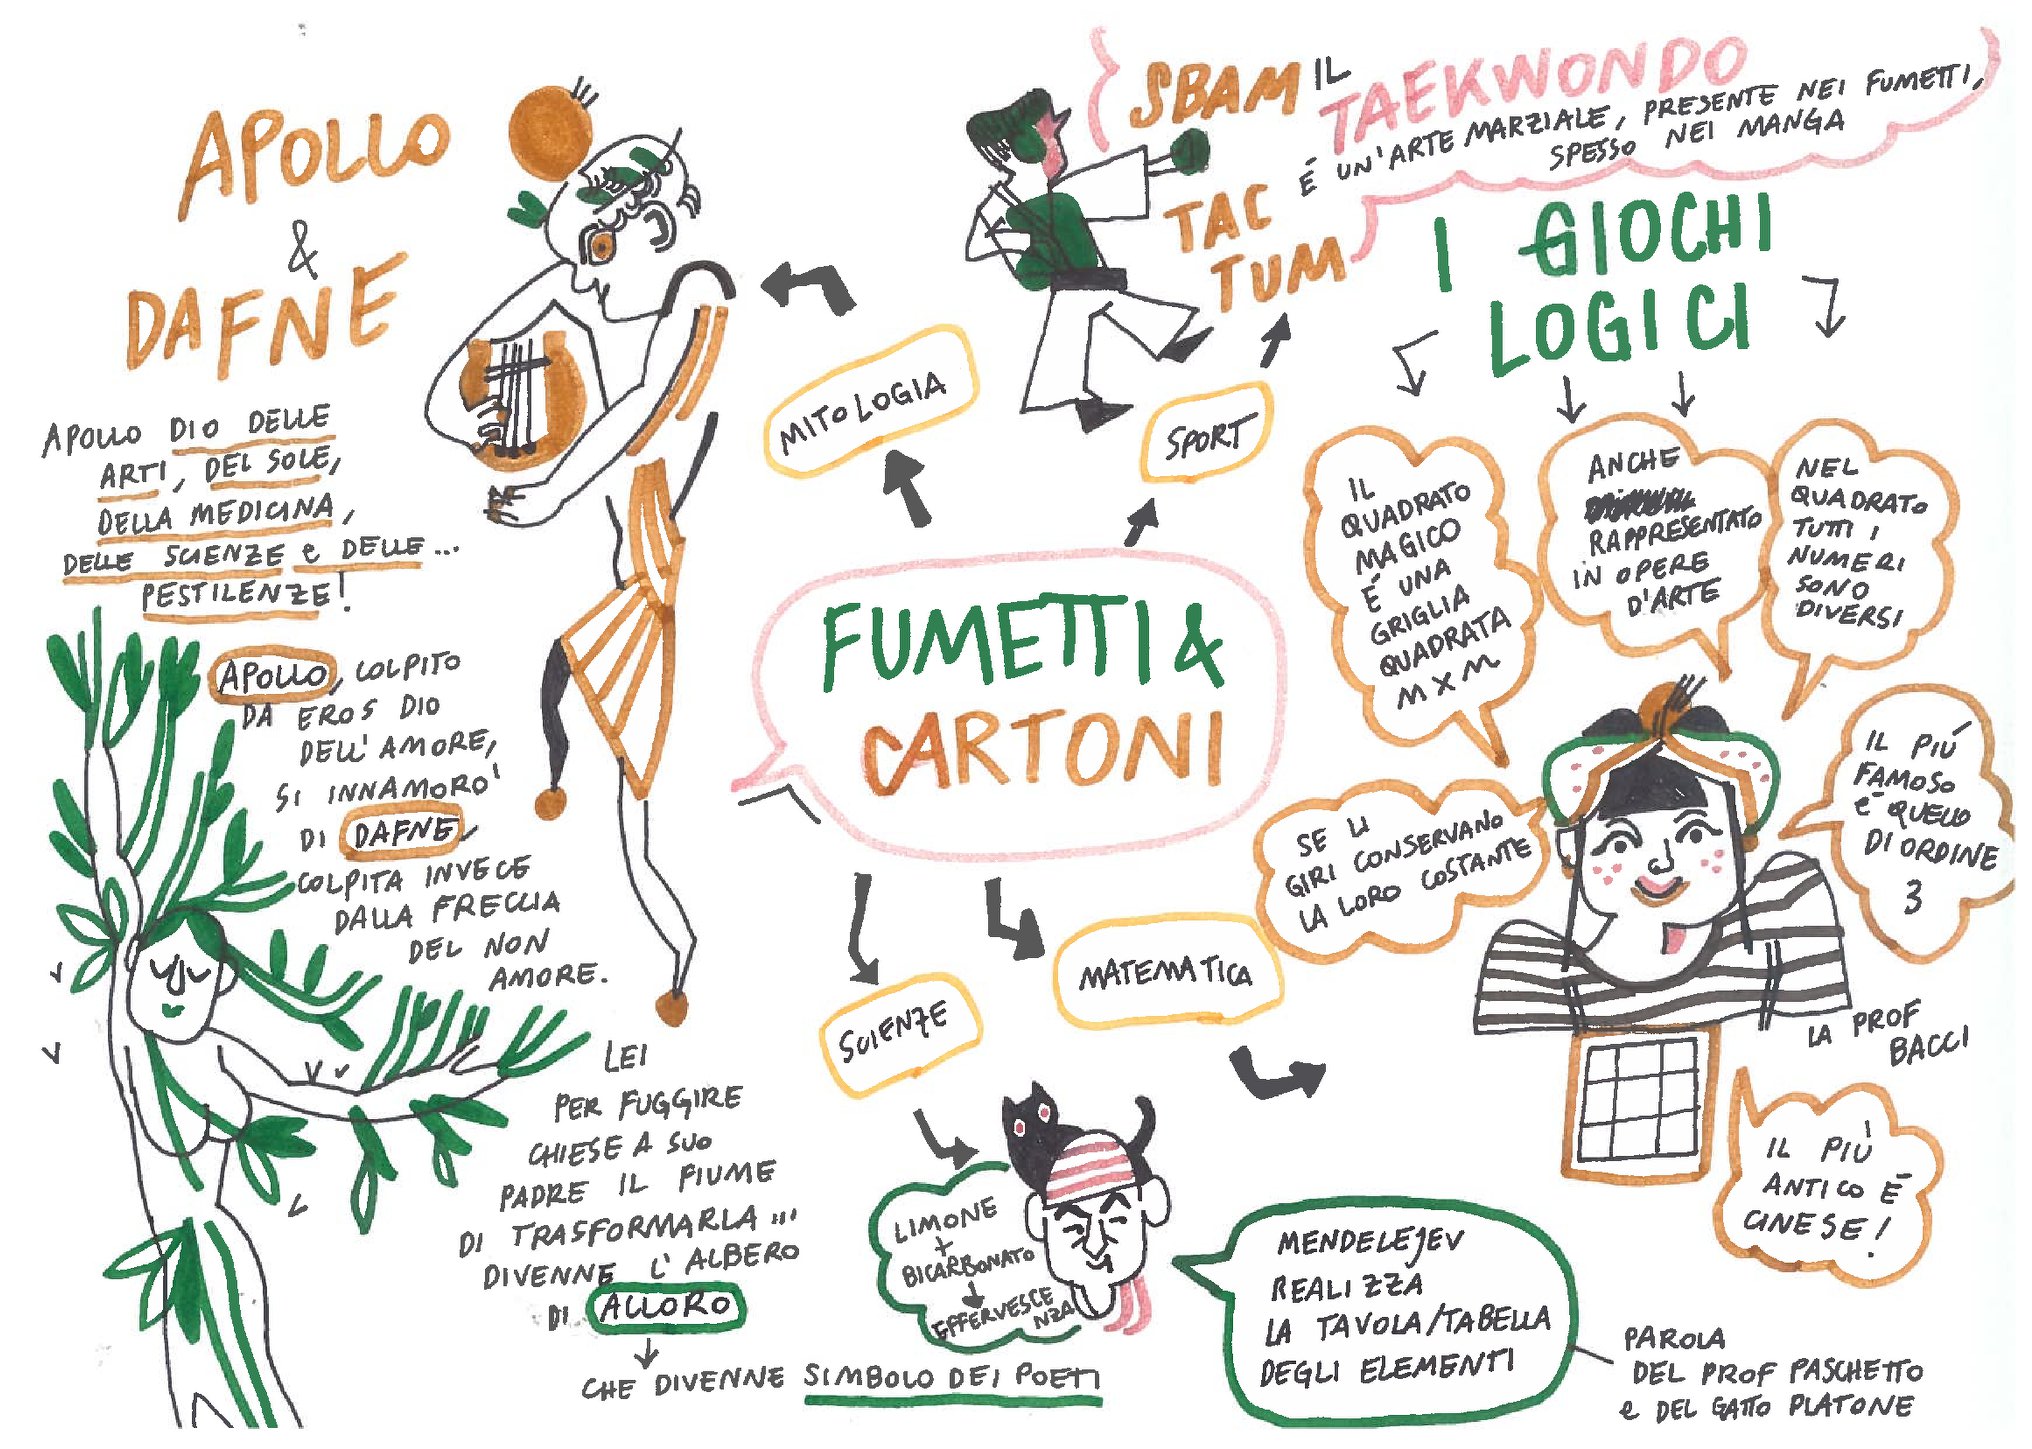 APOLLO
&
DAFNE
APOLLO DIO DELLE
ARTI, DEL SOLE,
DELLA MEDICINA,
DELLE SCIENZE e DELLE...
PESTILENZE!
APOLLO, COLPITO
DA EROS DIO
DELL'AMORE,
SI INNAMORO'
DI DAFNE,
COLPITA INVECE
DALLA FRECCIA
DEL NON
AMORE.
LEI
PER FUGGIRE
CHIESE A SUO
PADRE IL FIUME
DI TRASFORMARLA...
DIVENNE L'ALBERO
DI ALLORO
CHE DIVENNE SIMBOLO DEI POETI
MITOLOGIA
FUMETTI &
CARTONI
SPORT
SBAM
TAC
TUM
IL TAEKWONDO
É UN'ARTE MARZIALE, PRESENTE NEI FUMETTI,
SPESSO NEI MANGA
I GIOCHI
LOGICI
IL
QUADRATO
MAGICO
É UNA
GRIGLIA
QUADRATA
M X M
ANCHE
RAPPRESENTATO
IN OPERE
D'ARTE
NEL
QUADRATO
TUTTI I
NUMERI
SONO
DIVERSI
IL PIÚ
FAMOSO
É QUELLO
DI ORDINE
3
SE LI
GIRI CONSERVANO
LA LORO COSTANTE
LA PROF
BACCI
IL PIÙ
ANTICO É
CINESE!
MATEMATICA
SCIENZE
LIMONE
+
BICARBONATO
EFFERVESCE
NZA
MENDELEJEV
REALIZZA
LA TAVOLA/TABELLA
DEGLI ELEMENTI
PAROLA
DEL PROF PASCHETTO
e DEL GATTO PLATONE